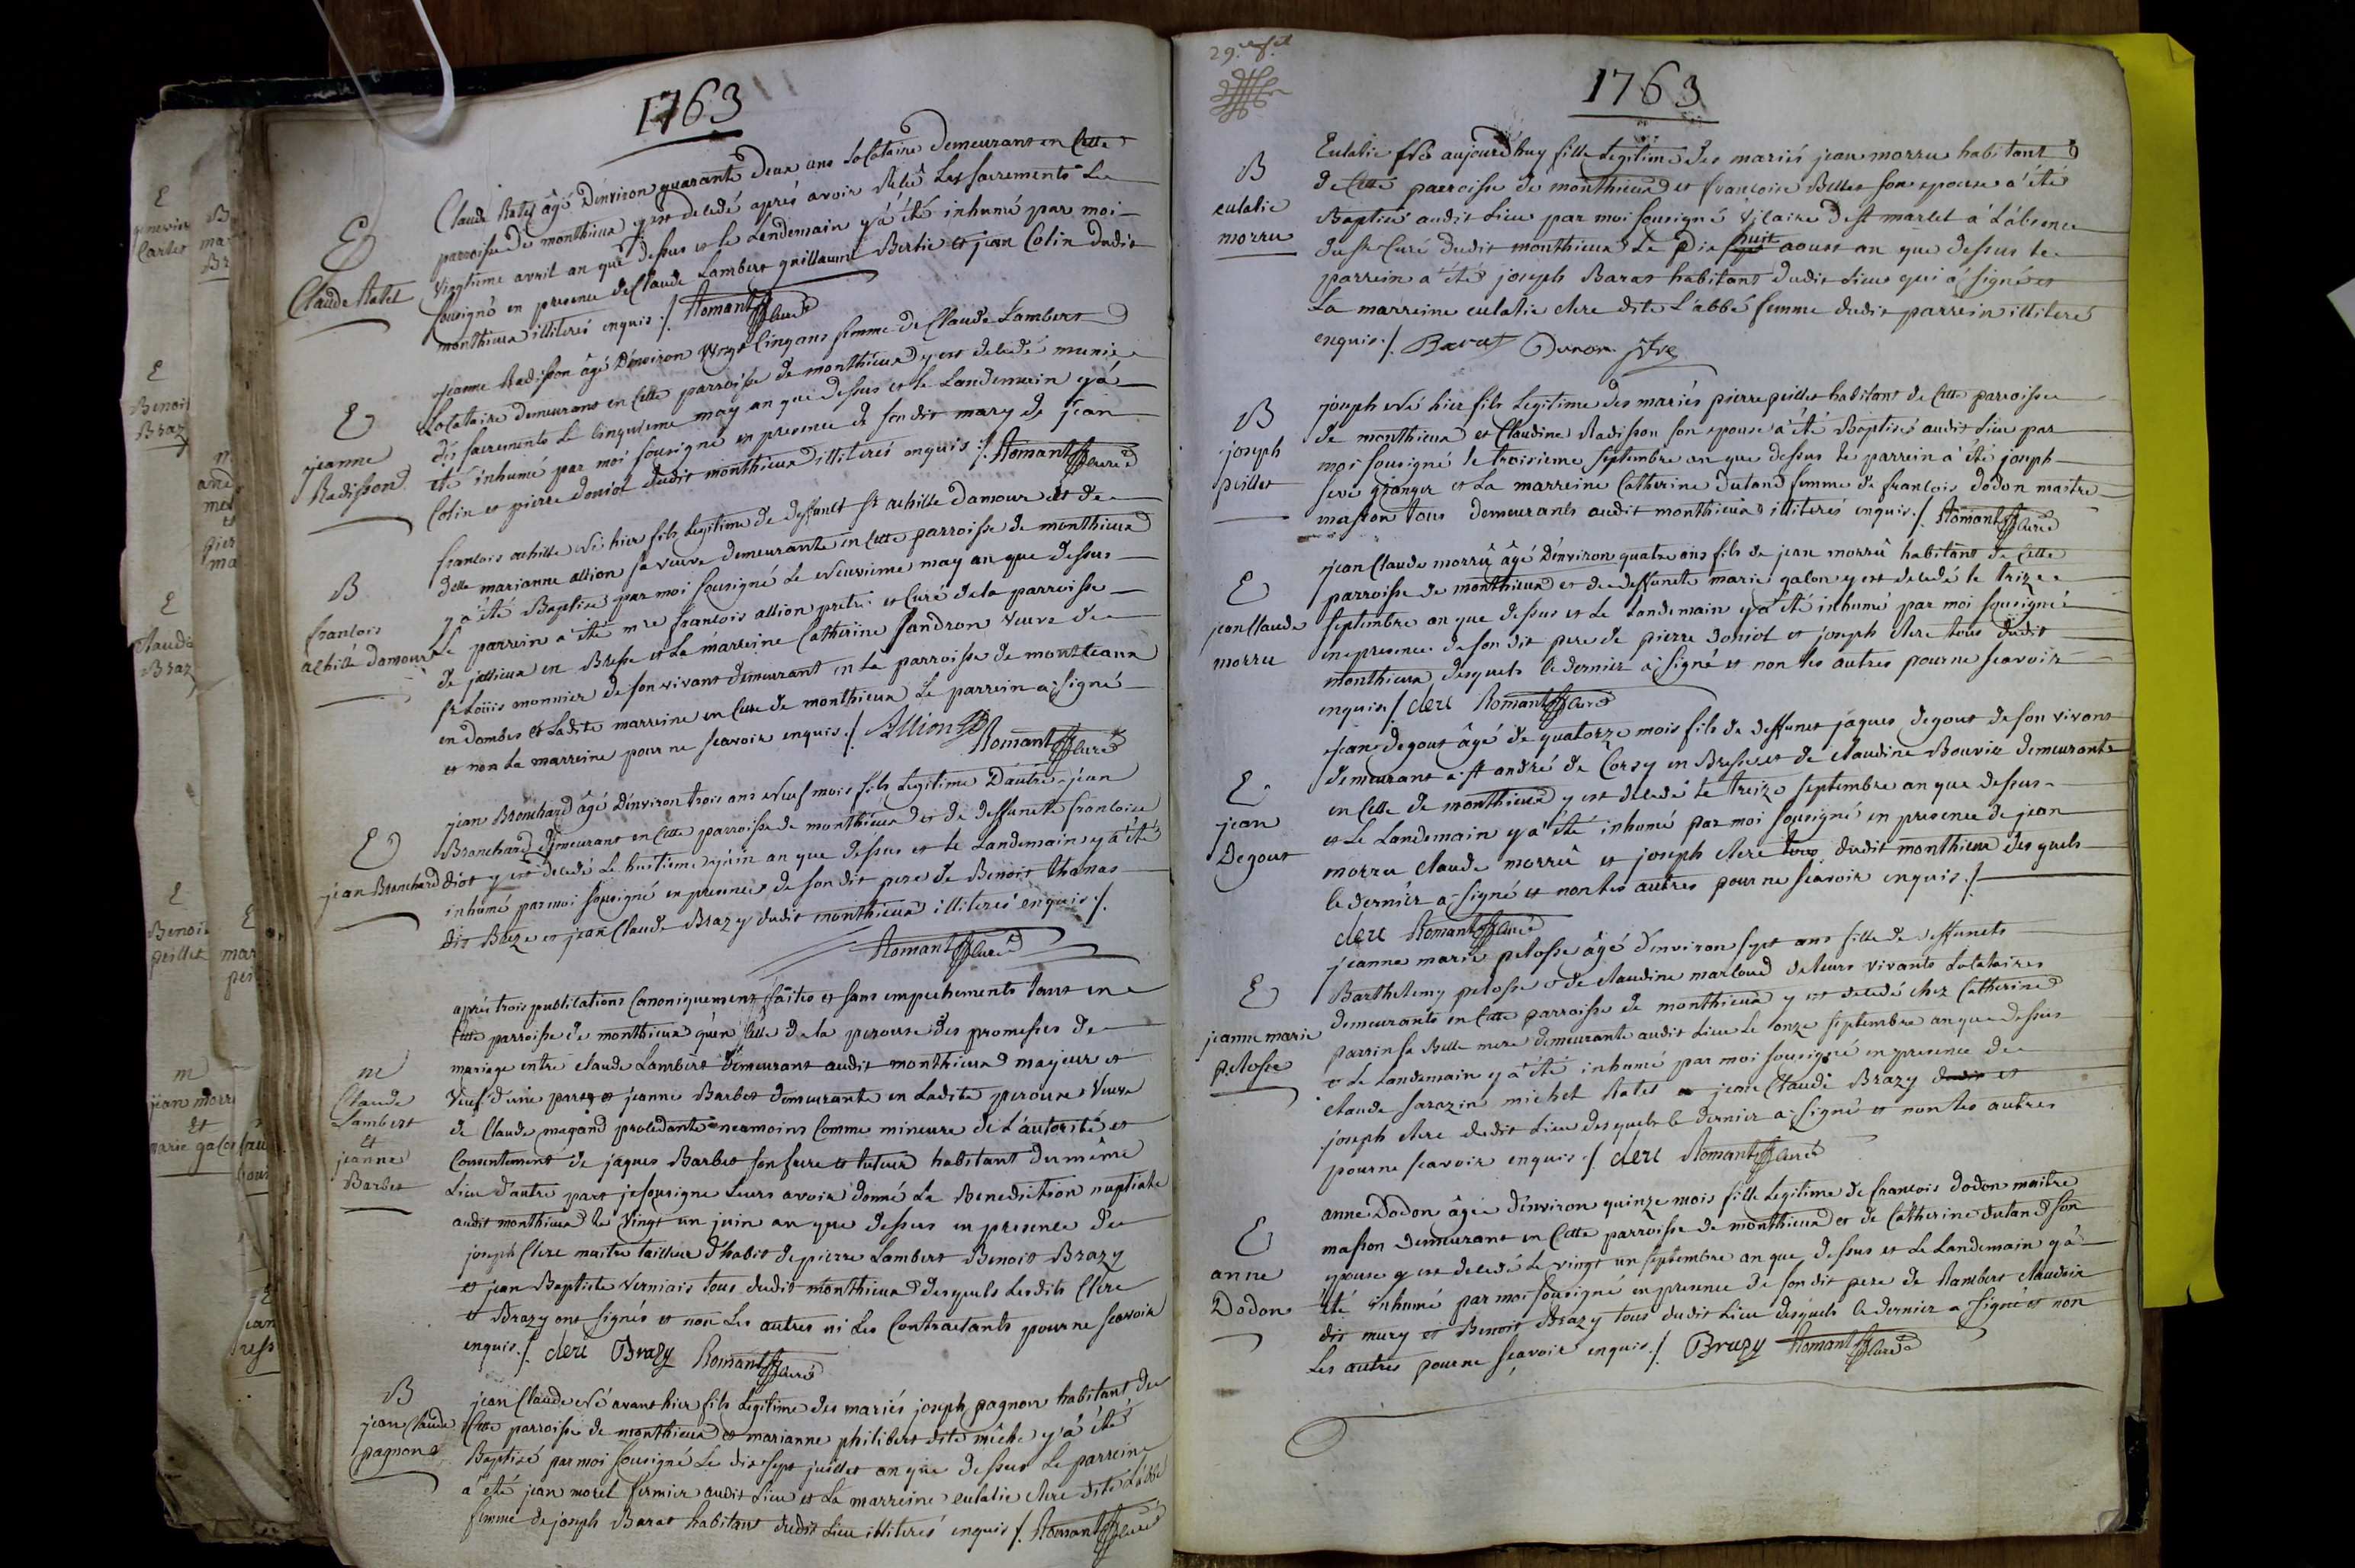 1763
E
Claude Ratel
Claude Ratel âgé d'environ quarante deux ans locataire demeurant en cette
parroisse de monthieux y est decedé aprés avoir reçû les sacrements le
vingtieme avril an que dessus et le lendemain y a été inhumé par moi
sousigné en presence de Claude Lambert guillaume Bertie et jean Colin dudit
monthieux illiterés enquis ./. Romant curé
E
jeanne
Radisson
jeanne Radisson âgé d'environ vingt cinq ans femme de Claude Lambert
Locataire demeurant en cette parroisse de monthieux y est decedé munie
des sacrements le cinquieme may an que dessus et le Landemain y a
été inhumé par moi sousigné en presence de son dit mary de jean
Colin et pierre doniol dudit monthieux illiterés enquis ./. Romant curé
B
francois
achille damour
francois achille né hier fils legitime de deffunct sr achille damour et de
delle marianne allion sa veuve demeurante en cette parroisse de monthieux
y a été Baptisé par moi sousigné le neuvieme may an que dessus
Le parrein a été mre francois allion pretre et curé de la parroisse
de joÿieux en Bresse et la marreine Catherine Sandron veuve de
sr Loüis monnier de son vivant demeurant en la parroisse de montleann
en dombes et Ladite marreine en cette de monthieux Le parrein a signé
et non la marreine pour ne scavoir enquis ./. Allion
Romant curé
E
jean Branchard
jean Branchard âgé d'environ trois ans neuf mois fils legitime d'autre jean
Branchard demeurant en cette parroisse de monthieux et de deffuncte francoise
diot y est decedé le huitieme juin an que dessus et le Landemain y a été
inhumé par moi sousigné en presence de son dit pere de Benoit thomas
dit Baize et jean Claude Brazy dudit monthieux illiterés enquis ./.
Romant curé
m
Claude
Lambert
et
jeanne
Barbet
aprés trois publications Canoniquement faites et sans empechements tant en
cette parroisse de monthieux qu'en celle de la peirouse des promesses de
mariage entre claude Lambert demeurant audit monthieux majeur et
veuf d'une part et jeanne Barbet demeurante en Ladite peroure veuve
de Claude magand procedante neamoins Comme mineure de L'autorité et
Consentement de jaques Barbet son frere et tuteur habitant du même
Lieu d'autre part je sousigné Leurs avoir donné La Benediction nuptiale
audit monthieux le vingt un juin an que dessus en presence de
joseph Clere maitre tailleur d'habit de pierre Lambert Benoit Brazy
et jean Baptiste verniais tous dudit monthieux desquels Lesdits Clere
et Brazy ont signés et non Les autres ni Les Contractants pour ne scavoir
enquis ./. clere Brazy Romant curé
B
jean Claude
pagnon
jean Claude né avant hier fils legitime des mariés joseph pagnon habitant de
Cette parroisse de monthieux et marianne philibert dite miche y a été
Baptisé par moi sousigné Le dix sept juillet an que dessus Le parrein
a été jean morel fermier audit Lieu et La marreine eulalie clere dite L'abbé
femme de joseph Barat habitant dudit Lieu illiterés enquis ./. Romant curé
29.e
1763
B
eulalie
morru
Eulalie née aujourdhuy fille Legitime des mariés jean morru habitant
de Cette parroisse de monthieux et francoise Bellet son epouse a été
Baptisé audit Lieu par moi sousigné vicaire de st marcel a L'absence
du sr Curé dudit monthieux Le dix huit aoust an que dessus le
parrein a été joseph Barat habitant dudit Lieu qui a signé et
La marreine eulalie clere dite L'abbé femme dudit parrein illiteré
enquis ./. Barat
B
joseph
peillet
joseph né hier fils Legitime des mariés pierre peillet habitant de Cette parroisse
de monthieux et Claudine Radisson son epouse a été Baptisés audit Lieu par
moi sousigné le troisieme septembre an que dessus le parrein a été joseph
seve granger et La marreine Catherine dutand femme de francois dodon maitre
masson tous demeurants audit monthieux illiterés enquis ./. Romant curé
E
jean Claude
morru
jean Claude morrû âgé d'environ quatre ans fils de jean morrû habitant de Cette
parroisse de monthieux et de deffuncte marie galon y est decedé le treize
septembre an que dessus et Le Landemain y a été inhumé par moi sousigné
en presence de son dit pere de pierre doniol et joseph clere tous dudit
monthieux desquels le dernier a signé et non les autres pour ne scavoir
enquis ./. clere Romant curé
E
jean
Degout
jean degout âgé de quatorze mois fils de deffunct jaques degout de son vivant
demeurant a st andré de Corcy en Bresse et de claudine Bouvier demeurante
en Celle de monthieux y est decedé le treize septembre an que dessus
et Le Landemain y a été inhumé par moi sousigné en presence de jean
morru claude morrû et joseph clere tous dudit monthieux desquels
le dernier a signé et non les autres pour ne scavoir enquis ./.
clere Romant curé
E
jeanne marie
pelosse
jeanne marie pelosse âgé d'environ sept ans fille de deffuncts
Barthelemy pelosse et de claudine marloud de leurs vivants Locataires
demeurants en Cette parroisse de monthieux y est decedé chez Catherine
parrin sa Belle mere demeurante audit Lieu Le onze septembre an que dessus
et Le Landemain y a été inhumé par moi sousigné en presence de
claude sarazin michel Ratel et jean Claude Brazy dudit et
joseph clere dudit Lieu desquels le dernier a signé et non les autres
pour ne scavoir enquis ./. clere Romant curé
E
anne
Dodon
anne Dodon âgée d'environ quinze mois fille Legitime de francois dodon maitre
masson demeurant en Cette parroisse de monthieux et de Catherine dutand son
epouse y est decedé Le vingt un septembre an que dessus et Le Landemain y a
été inhumé par moi sousigné en presence de son dit pere de Rambert claudoir
dit mury et Benoit Brazy tous dudit Lieu desquels le dernier a signé et non
Les autres pour ne scavoir enquis ./. Brazy Romant curé